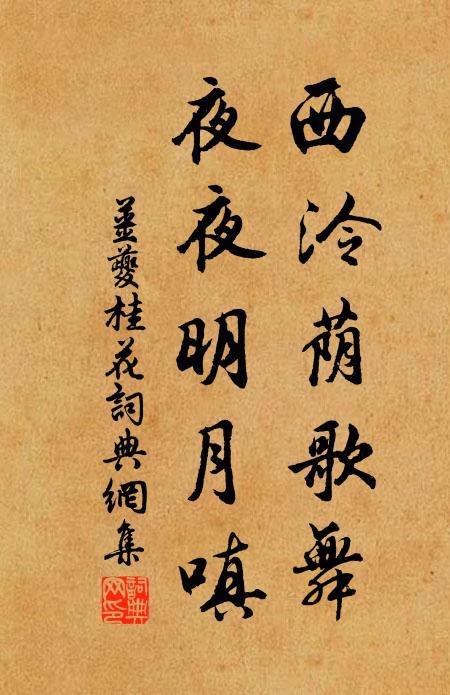 西泠荫歌舞
夜夜明月嗔
姜夔桂花詞典網集
詞典網印